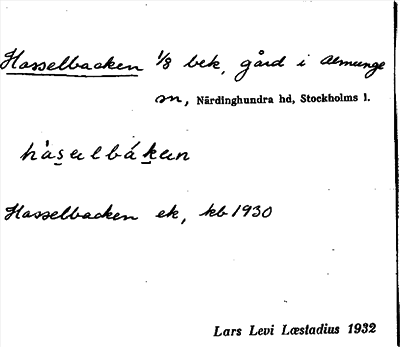 Hasselbacken 1/8 bek, gård i Almunge
sn, Närdinghundra hd, Stockholms l.
hàsəlbákən
Hasselbacken ek, kb 1930
Lars Levi Læstadius 1932